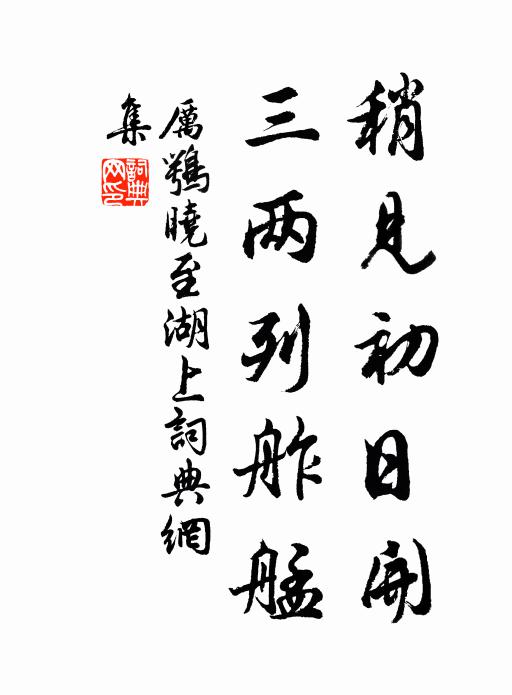 稍見初日開
三两列舴艋
厲鶚曉至湖上詞典網
集
詞典網印